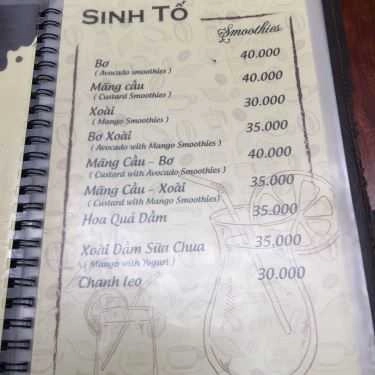 SINH TỐ
Smoothies
Bơ 40.000
( Avocado smoothies )
Mãng cầu 40.000
( Custard Smoothies )
Xoài 30.000
( Mango Smoothies )
Bơ Xoài 35.000
( Avocado with Mango Smoothies )
Mãng Cầu - Bơ 40.000
( Custard with Avocado Smoothies )
Mãng Cầu - Xoài 35.000
( Custard with Mango Smoothies )
Hoa Quả Dầm 35.000
Xoài Dầm Sữa Chua 35.000
( Mango with Yogurt )
Chanh leo 30.000